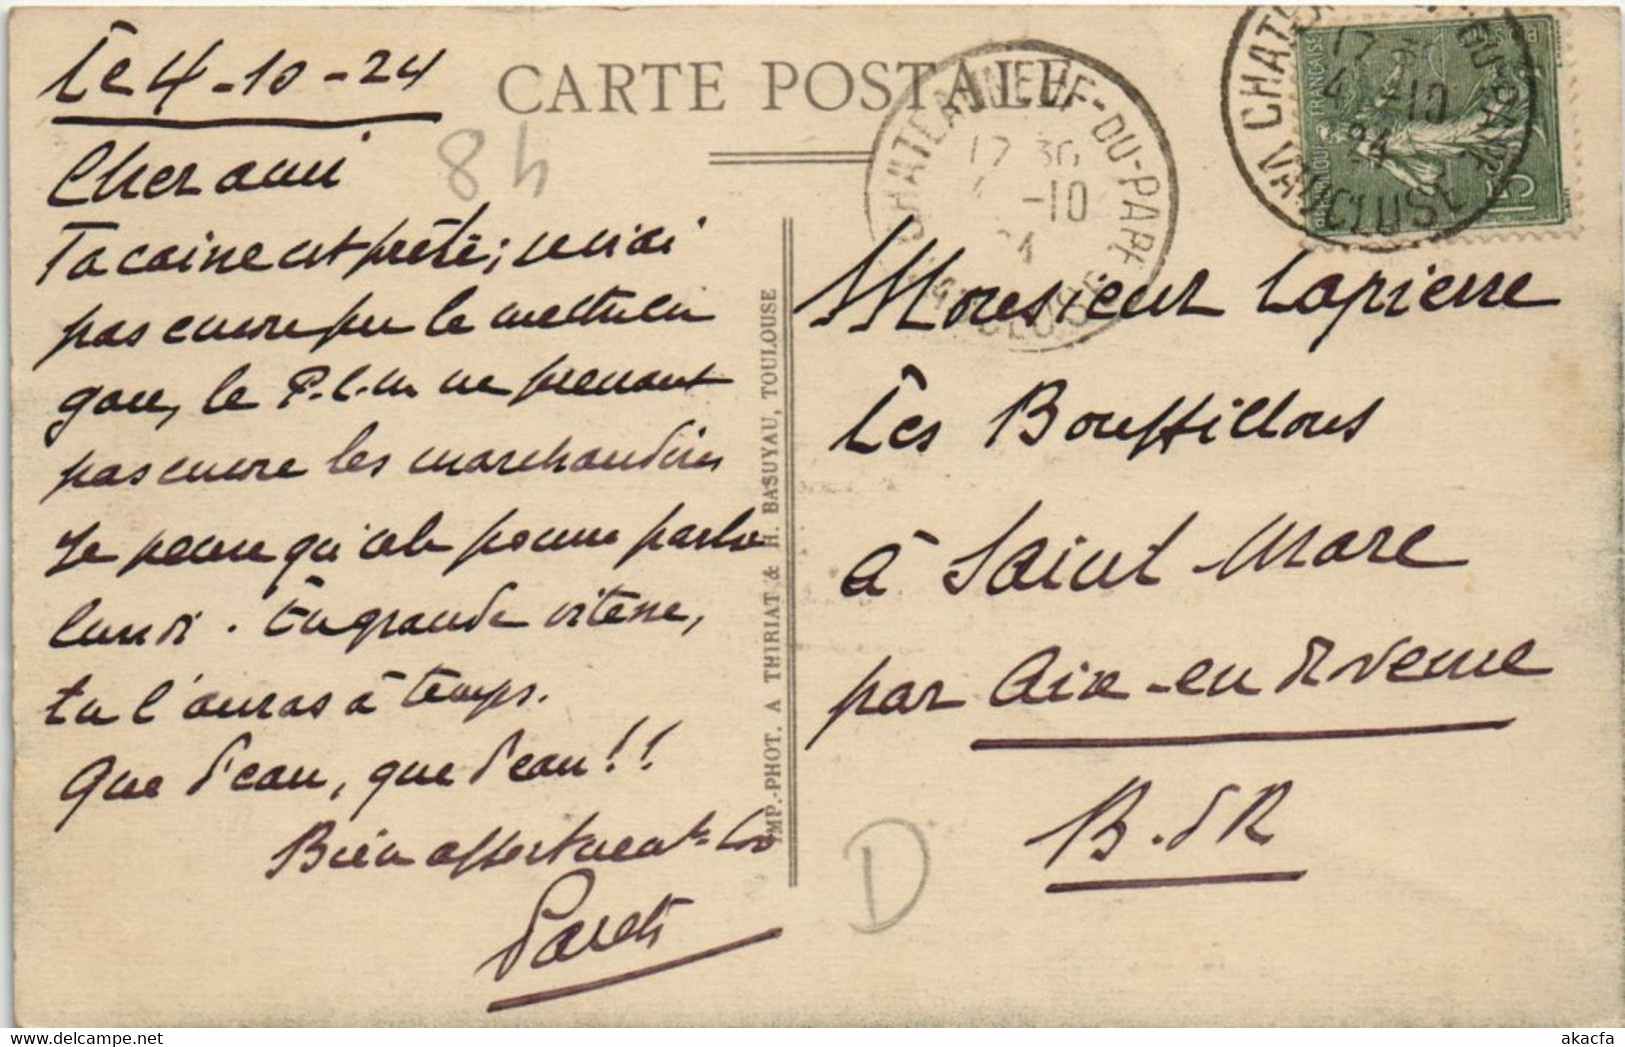 CARTE POSTALE
Le 4-10-24
84
Cher ami
Ta caisse est prête; mais j'ai
pas encore pu le mettre en
gare, le P.L.M ne prenant
pas encore les marchandises
Je pense qu'elle pourra partir
lundi. En grande vitesse,
tu l'auras à temps.
Que d'eau, que d'eau!!
Bien affectueusement
IMP.-PHOT. A THIRIAT & H. BASUYAU, TOULOUSE
CHATEAUNEUF-DU-PAPE
17 30
4 -10
24
VAUCLUSE
CHATEAUNEUF-DU-PAPE
17 30
4 -10
24
VAUCLUSE
15
Monsieur Lapierre
Les Bouffillons
à Saint Marc
par Aix-en Provence
B. d R
D
akacfa